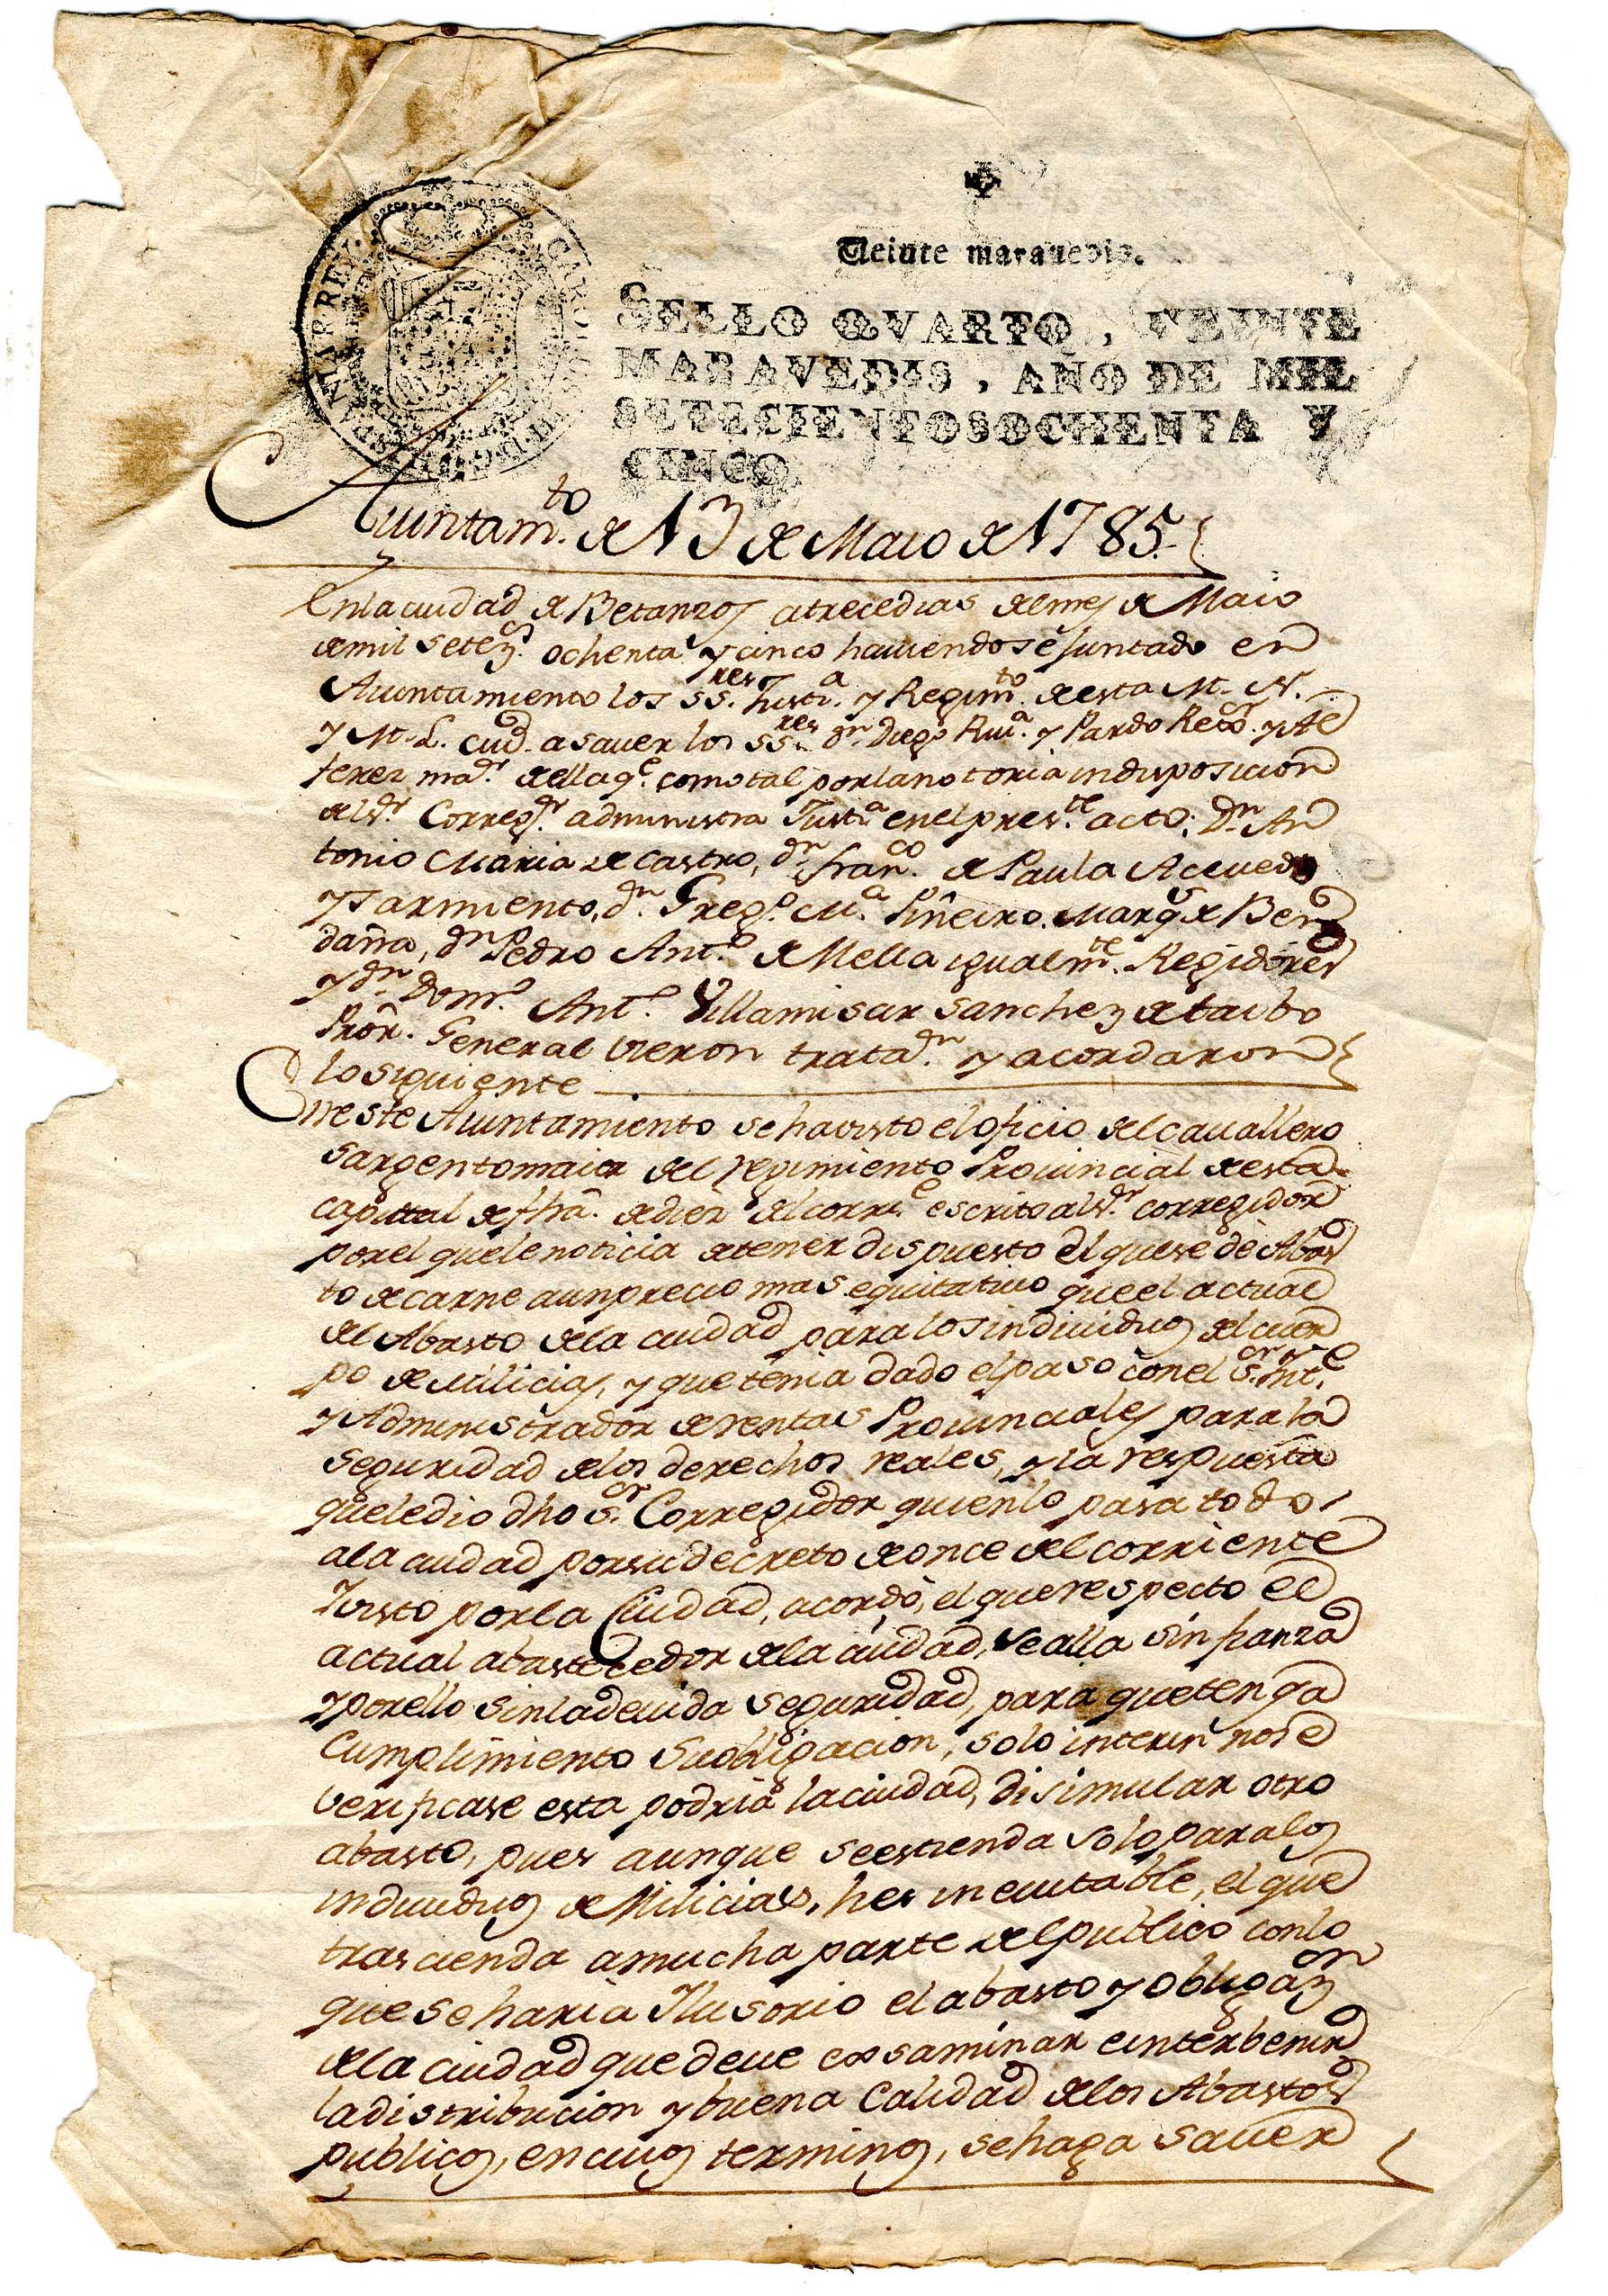 Veinte maravedis.
SELLO QVARTO, VEINTE
MARAVEDIS, AÑO DE MIL
SETECIENTOS OCHENTA Y
CINCO
Aiuntam.to de 13 de Maio de 1785
En la ciudad de Betanzos a trece dias del mes de Maio
de mil setez.s ochenta y cinco haviendose juntado en
Aiuntamiento los ss.res Justi.a y Regim.to de esta M. N.
y M. L. ciud.d a saver los ss.res d.n Diego Rui.a y Pardo Rec.or y Al
ferez ma.or de ella q.e como tal por la notoria indisposicion
del s.or Correg.or administra Just.a en el pres.te acto; D.n An
tonio Maria de Castro, d.n Fran.co de Paula Acevedo
y Sarmiento, d.n Greg.o M.a Piñeiro. Marq.s de Ben
daña, d.n Pedro Ant.o de Mella igualm.te Regidores
y d.n Dom.o Ant.o Villamisar Sanchez de taibo
Pror. General vieron trata.n y acordaron
lo siguiente
En este Aiuntamiento se ha visto el oficio del cavallero
sargento maior del regimiento Provincial de esta
capital de fha. de diez del corr.e escrito al s.or corregidor
por el que le noticia de tener dispuesto el que se dè Abas
to de carne a un precio mas equitativo que el actual
del Abasto de la ciudad para los individuos del cuer
po de Milicias, y que tenia dado el paso con el s.or Int.e
y Administrador de rentas Provinciales para la
seguridad de los derechos reales, y la respuesta
que le dio dho s.or Corregidor quien lo pasa todo
a la ciudad por su decreto de once del corriente
Visto por la Ciudad, acordò, el que respecto el
actual abastecedor de la ciudad, se alla sin fianza
y por ello sin la devida seguridad, para que tenga
Cumplimiento su obligacion; solo interin no se
verificase esta podria la ciudad, disimular otro
abasto, pues aunque se estienda solo para los
individuos de Milicias, hes inevitable, el que
trascienda a mucha parte del publico con lo
que se haria Ilusorio el abasto y obligaz.on
de la ciudad que deve exsaminar e interbenir
la distribucion y buena Calidad de los Abastos
publicos, en cuios terminos, se haga saver